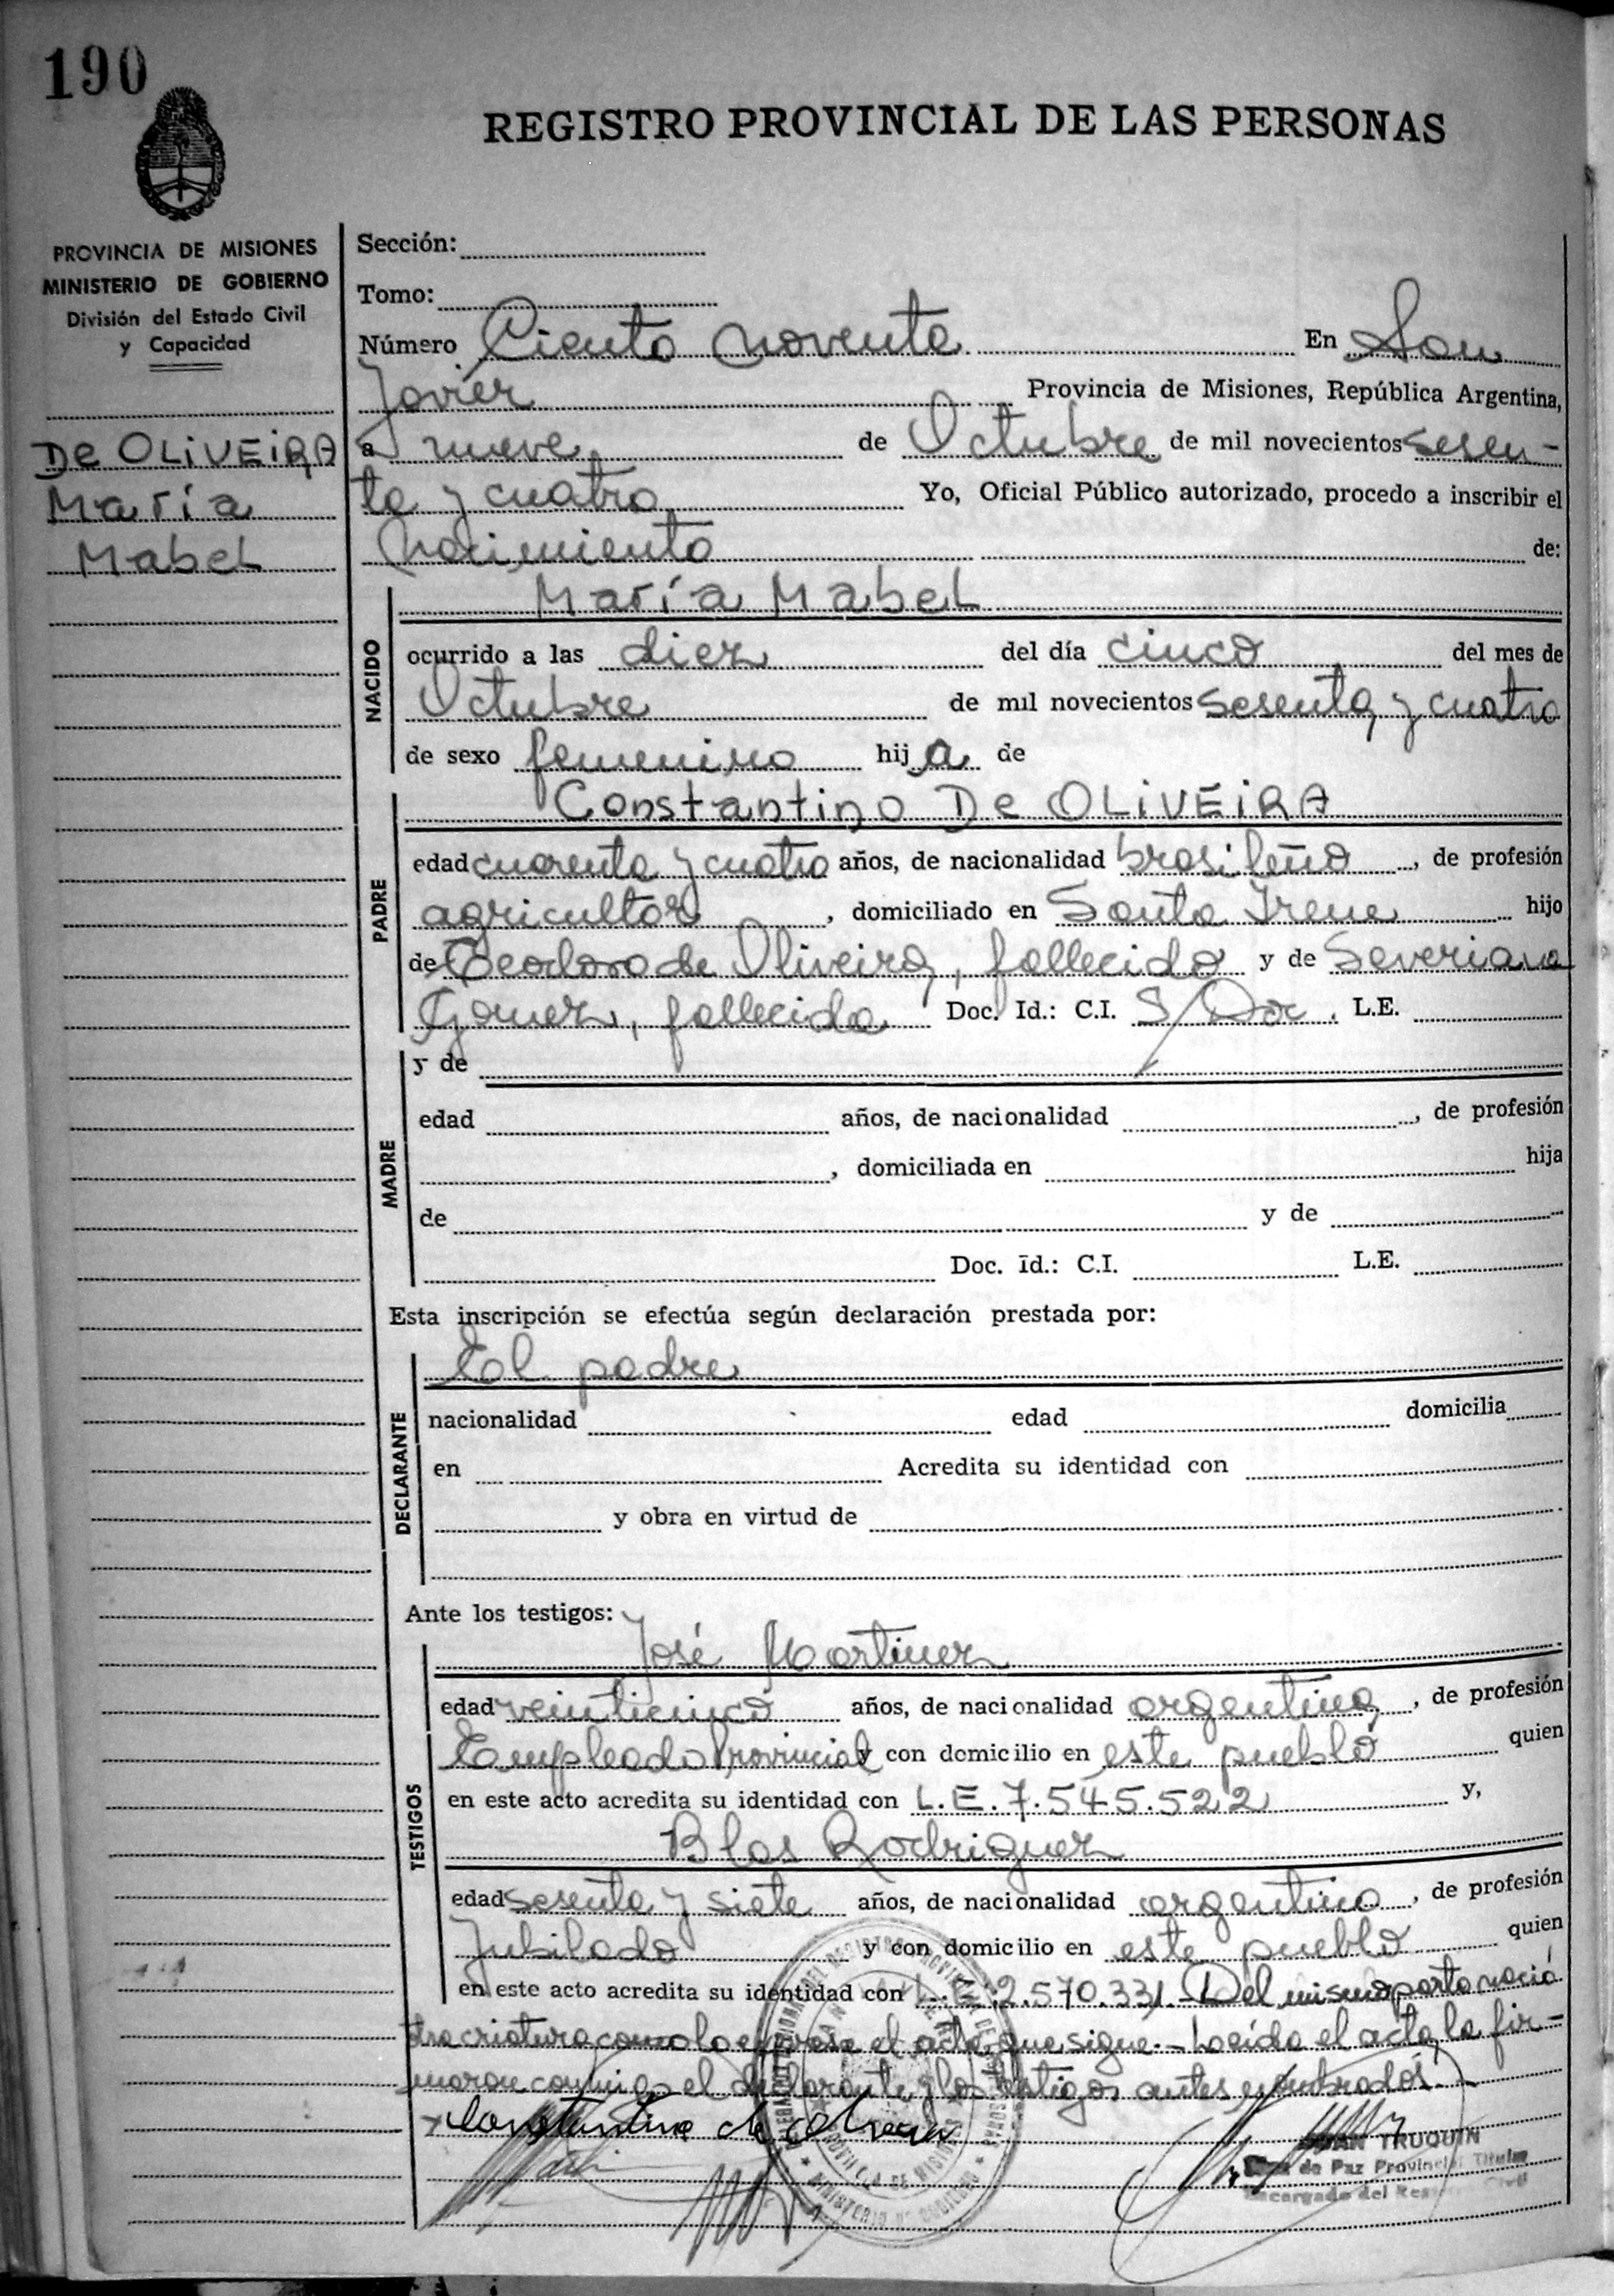 190
REGISTRO PROVINCIAL DE LAS PERSONAS
PROVINCIA DE MISIONES
MINISTERIO DE GOBIERNO
División del Estado Civil
y Capacidad
DE OLIVEIRA
María
Mabel
Sección:
Tomo:
Número Ciento noventa En San
Javier Provincia de Misiones, República Argentina,
a nueve de Octubre de mil novecientos sesen-
ta y cuatro Yo, Oficial Público autorizado, procedo a inscribir el
nacimiento de:
NACIDO
María Mabel
ocurrido a las diez del día cinco del mes de
Octubre de mil novecientos sesenta y cuatro
de sexo femenino hija de
PADRE
Constantino De OLIVEIRA
edad cuarenta y cuatro años, de nacionalidad brasileño, de profesión
agricultor, domiciliado en Santa Irene hijo
de Teodoro de Oliveira, fallecido y de Severiana
Gomez, fallecida Doc. Id.: C.I. S/Doc. L.E.
MADRE
y de
edad años, de nacionalidad , de profesión
, domiciliada en hija
de y de
Doc. Id.: C.I. L.E.
Esta inscripción se efectúa según declaración prestada por:
DECLARANTE
El padre
nacionalidad edad domicilia
en Acredita su identidad con
y obra en virtud de
Ante los testigos:
TESTIGOS
José Martinez
edad veinticinco años, de nacionalidad argentina, de profesión
Empleado Provincial y con domicilio en este pueblo quien
en este acto acredita su identidad con L.E. 7.545.522 y,
Blas Rodriguez
edad sesenta y siete años, de nacionalidad argentino, de profesión
Jubilado y con domicilio en este pueblo quien
en este acto acredita su identidad con L.E. 2.570.331. Del mismo parto nació
otra criatura como lo expresa el acta que sigue.- Leída el acta, la fir-
maron conmigo el declarante y los testigos antes nombrados.
Constantino de Oliveira
JUAN TRUQUIN
Juez de Paz Provincial Titular
Encargado del Registro Civil